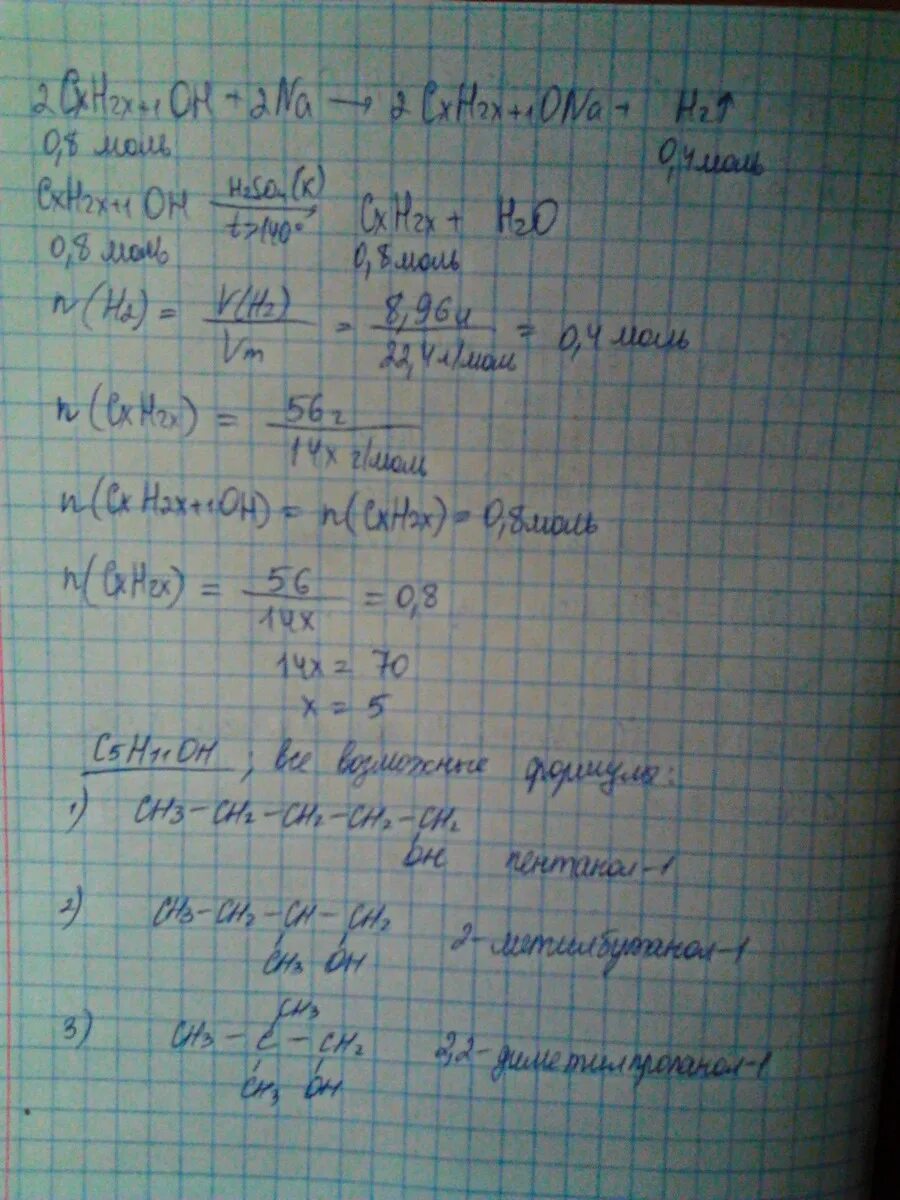 2CxH2x+1OH + 2Na → 2CxH2x+1ONa + H2↑
0,8 моль 0,4 моль
CxH2x+1OH H2SO4(к) t>140° → CxH2x + H2O
0,8 моль 0,8 моль
n(H2) = V(H2)/Vm = 8,96л/22,4 л/мол = 0,4 моль
n(CxH2x) = 56г/14x г/мол
n(CxH2x+1OH) = n(CxH2x) = 0,8 моль
n(CxH2x) = 56/14x = 0,8
14x = 70
x = 5
C5H11OH ; все возможные формулы:
1) CH3-CH2-CH2-CH2-CH2
OH пентанол-1
2) CH3-CH2-CH-CH2 2-метилбутанол-1
CH3 OH
CH3
3) CH3-C-CH2 2,2-диметилпропанол-1
CH3 OH